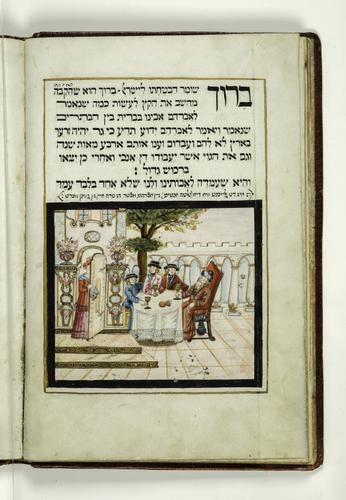 ברוך שומר הבטחתו לישראל · ברוך הוא שהקבה
מחשב את הקץ לעשות כמה שנאמר
לאברהם אבינו בברית בין הבתרים
שנאמר ויאמר לאברם ידוע תדע כי גר יהיה זרעך
בארץ לא להם ועבדום וענו אותם ארבע מאות שנה
וגם את הגוי אשר יעבודו דן אנכי ואחרי כן יצאו
ברכוש גדול :
והיא שעמדה לאבותינו ולנו שלא אחד בלבד עמד